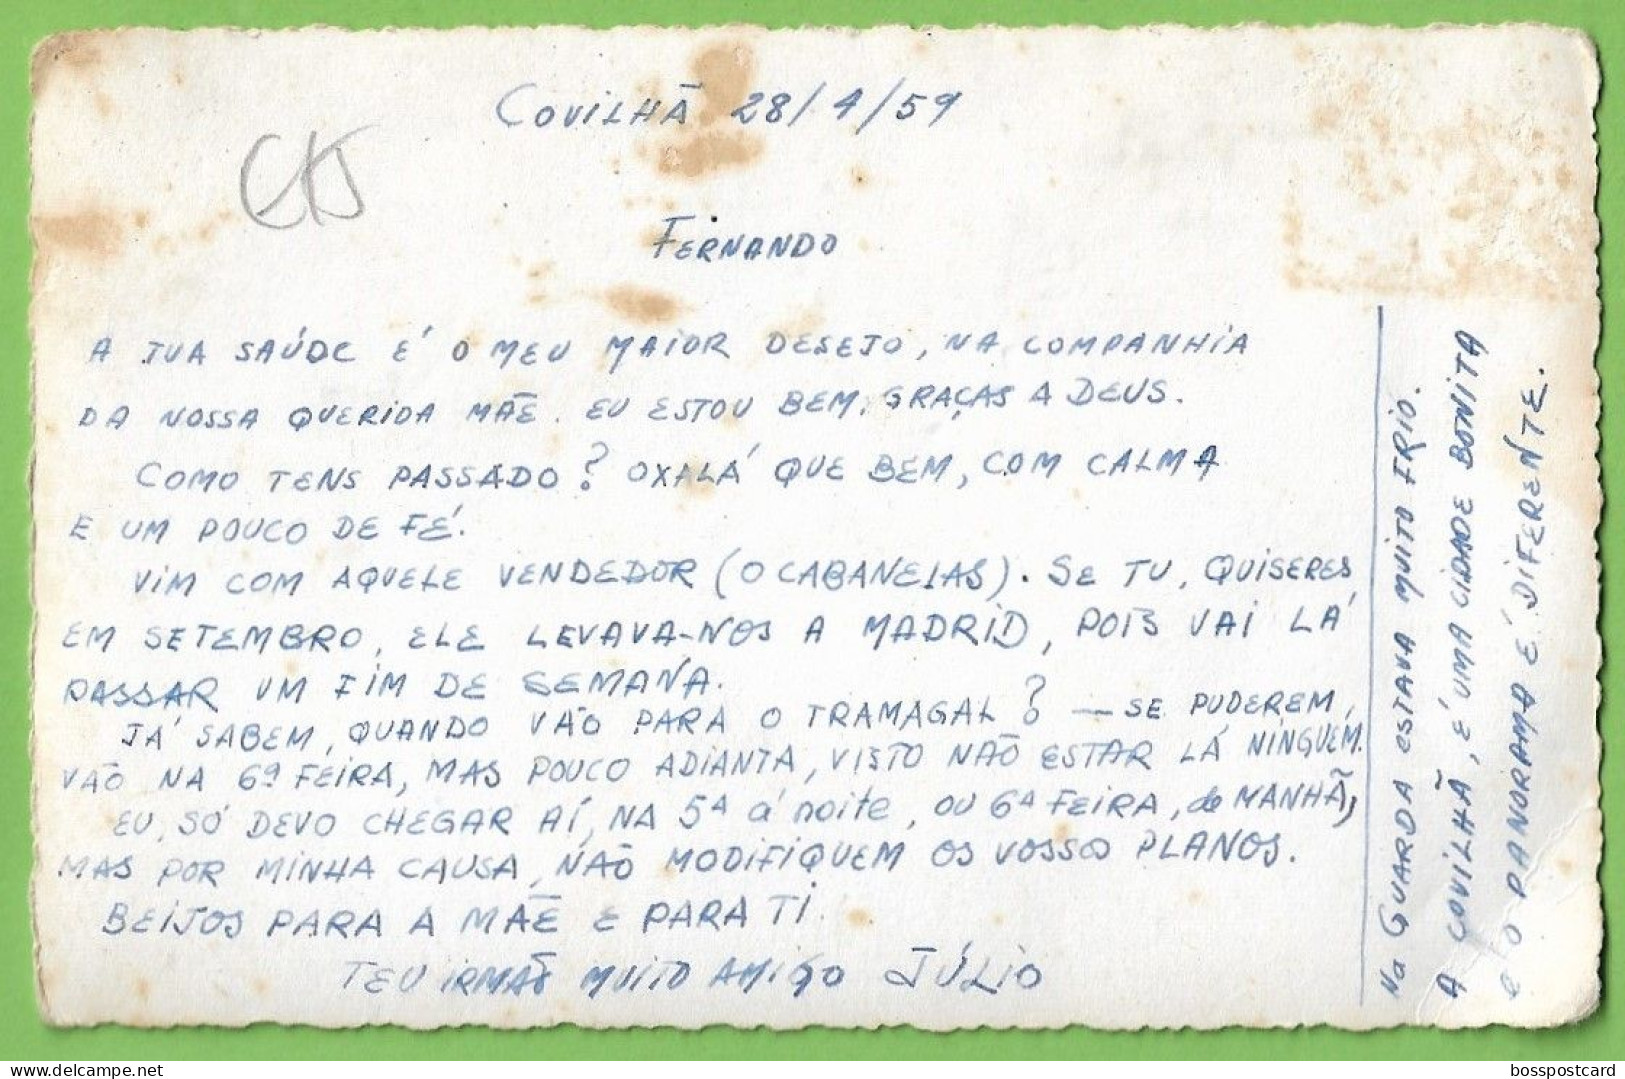 COVILHÃ 28/4/59
FERNANDO
A TUA SAÚDE É O MEU MAIOR DESEJO, NA COMPANHIA
DA NOSSA QUERIDA MÃE. EU ESTOU BEM, GRAÇAS A DEUS.
COMO TENS PASSADO? OXALÁ QUE BEM, COM CALMA
E UM POUCO DE FÉ.
VIM COM AQUELE VENDEDOR (O CABANELAS). SE TU, QUISERES
EM SETEMBRO, ELE LEVAVA-NOS A MADRID, POIS VAI LÁ
PASSAR UM FIM DE SEMANA.
JÁ SABEM, QUANDO VÃO PARA O TRAMAGAL? — SE PUDEREM,
VÃO NA 6ª FEIRA, MAS POUCO ADIANTA, VISTO NÃO ESTAR LÁ NINGUEM.
EU, SÓ DEVO CHEGAR AÍ, NA 5ª á noite, OU 6ª FEIRA, de MANHÃ,
MAS POR MINHA CAUSA, NÃO MODIFIQUEM OS VOSSOS PLANOS.
BEIJOS PARA A MÃE E PARA TI.
TEU IRMÃO MUITO AMIGO JÚLIO
Na GUARDA ESTAVA MUITO FRIO.
A COVILHÃ, É UMA CIDADE BONITA
e O PANORAMA É DIFERENTE.
bosspostcard